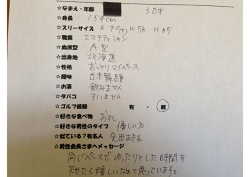 ☆なまえ・年齢 30才
☆身長 154cm
☆スリーサイズ W58 H85
☆職業 エステティシャン
☆血液型 A型
☆出身地 北海道
☆性格 おっとりマイペース
☆趣味 日本舞踊
☆お酒 飲みません
☆タバコ すいません
☆ゴルフ経験 有・無
☆好きな食べ物 おすし
☆好きな男性のタイプ 優しい方
☆似ている？有名人 矢田お
☆男性会員さまへメッセージ
同じペースでゆったりとした時間を
過せたら嬉しいなぁと思っています。